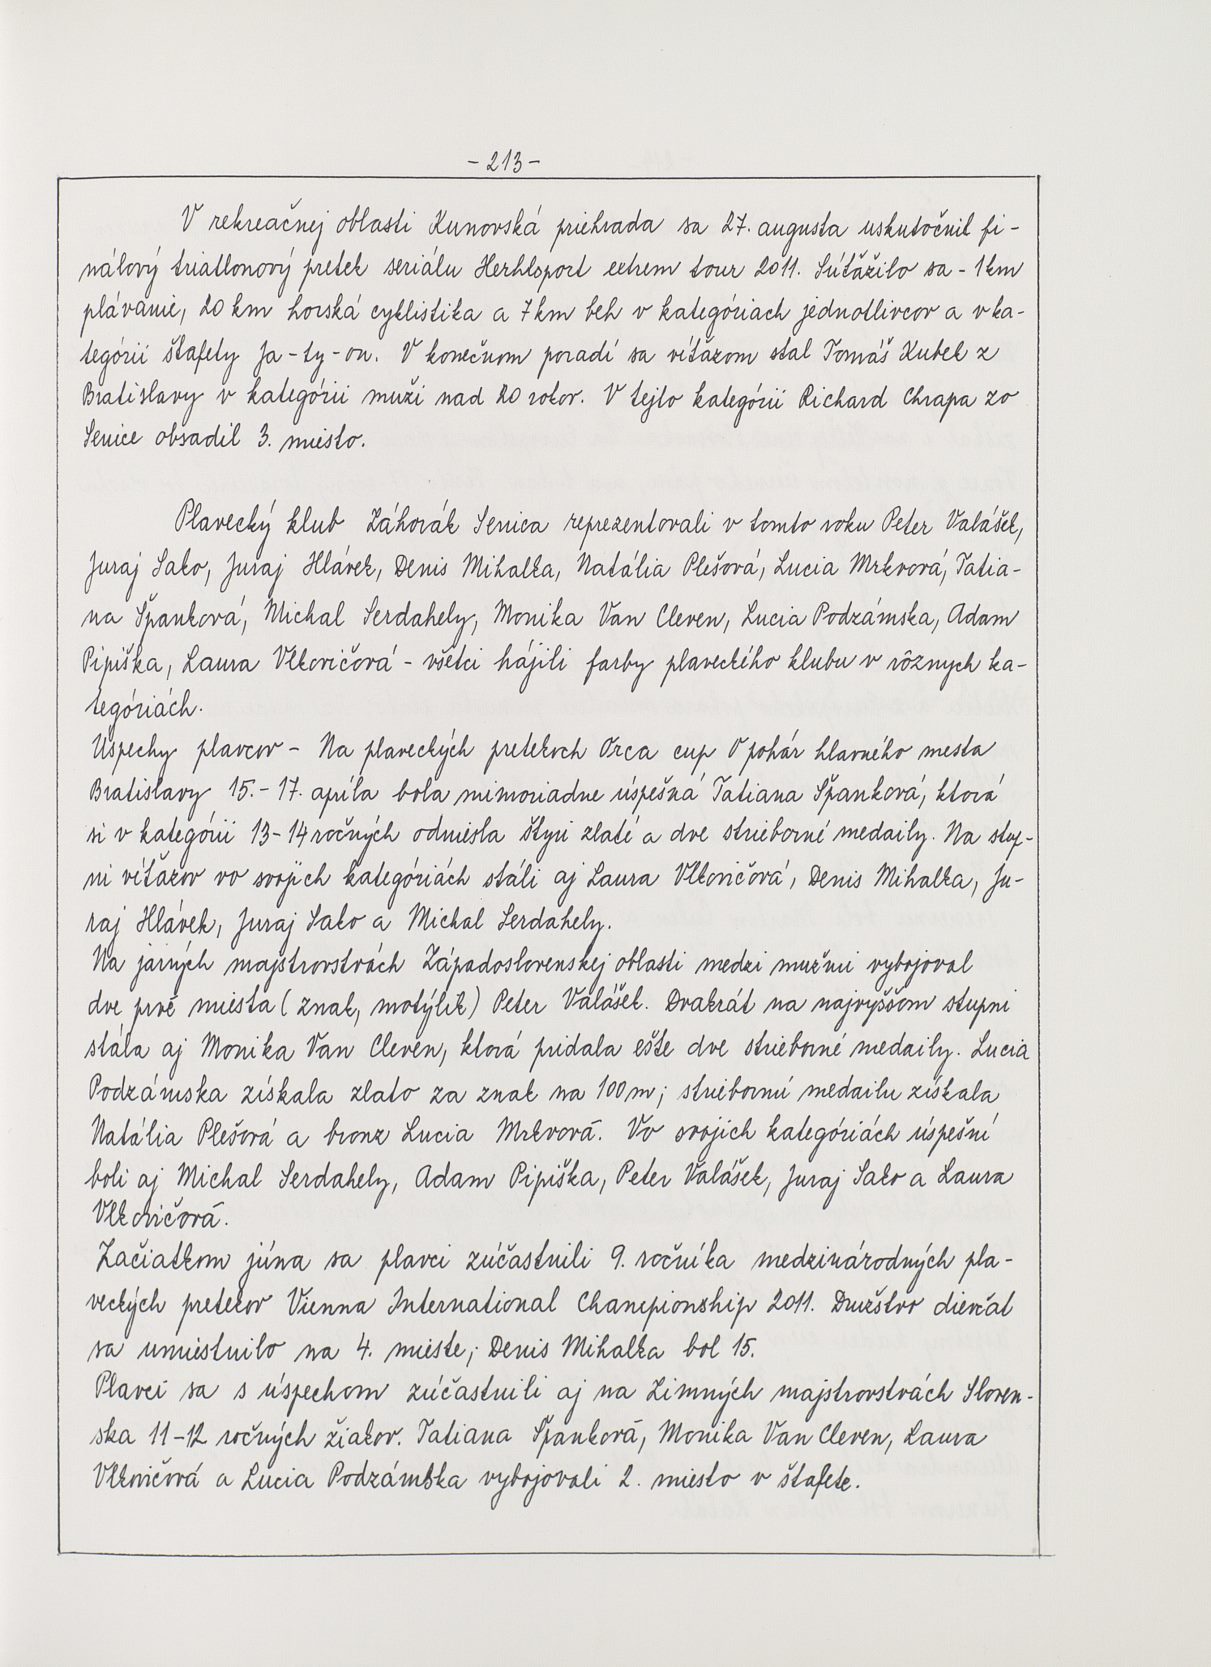 - 213 -
V rekreačnej oblasti Kunovská priehrada sa 27. augusta uskutočnil fi-
nálový triatlonový pretek seriálu Herhtsport extrem tour 2011. Súťažilo sa - 1 km
plávanie, 20 km horská cyklistika a 7 km beh v kategóriach jednotlivcov a v ka-
tegórii štafety Ja - ty - on. V konečnom poradí sa víťazom stal Tomáš Kubek z
Bratislavy v kategórii muži nad 20 rokov. V tejto kategórii Richard Chrapa zo
Senice obsadil 3. miesto.
Plavecký klub Záhorák Senica reprezentovali v tomto roku Peter Valášek,
Juraj Sako, Juraj Hlávek, Denis Mihalka, Natália Plešová, Lucia Mrkvová, Tatia-
na Španková, Michal Serdahely, Monika Van Cleven, Lucia Podzámska, Adam
Pipiška, Laura Vlkovičová - všetci hájili farby plaveckého klubu v rôznych ka-
tegóriách.
Úspechy plavcov - Na plaveckých pretekoch Orca cup O pohár hlavného mesta
Bratislavy 15. - 17. apríla bola mimoriadne úspešná Tatiana Španková, ktorá
si v kategórii 13 - 14 ročných odniesla štyri zlaté a dve strieborné medaily. Na stup-
ni víťazov vo svojich kategóriách stáli aj Laura Vlkovičová, Denis Mihalka, Ju-
raj Hlávek, Juraj Sako a Michal Serdahely.
Na jarných majstrovstvách Západoslovenskej oblasti medzi mužmi vybojoval
dve prvé miesta ( znak, motýlik ) Peter Valášek. Dvakrát na najvyššom stupni
stála aj Monika Van Cleven, ktorá pridala ešte dve strieborné medaily. Lucia
Podzámska získala zlato za znak na 100 m; striebornú medailu získala
Natália Plešová a bronz Lucia Mrkvová. Vo svojich kategóriách úspešní
boli aj Michal Serdahely, Adam Pipiška, Peter Valášek, Juraj Sako a Laura
Vlkovičová.
Začiatkom júna sa plavci zúčastnili 9. ročníka medzinárodných pla-
veckých pretekov Vienna International Championship 2011. Družstvo dievčat
sa umiestnilo na 4. mieste; Denis Mihalka bol 15.
Plavci sa s úspechom zúčastnili aj na Zimných majstrovstvách Sloven-
ska 11 - 12 ročných žiakov. Tatiana Španková, Monika Van Cleven, Laura
Vlkovičová a Lucia Podzámska vybojovali 2. miesto v štafete.